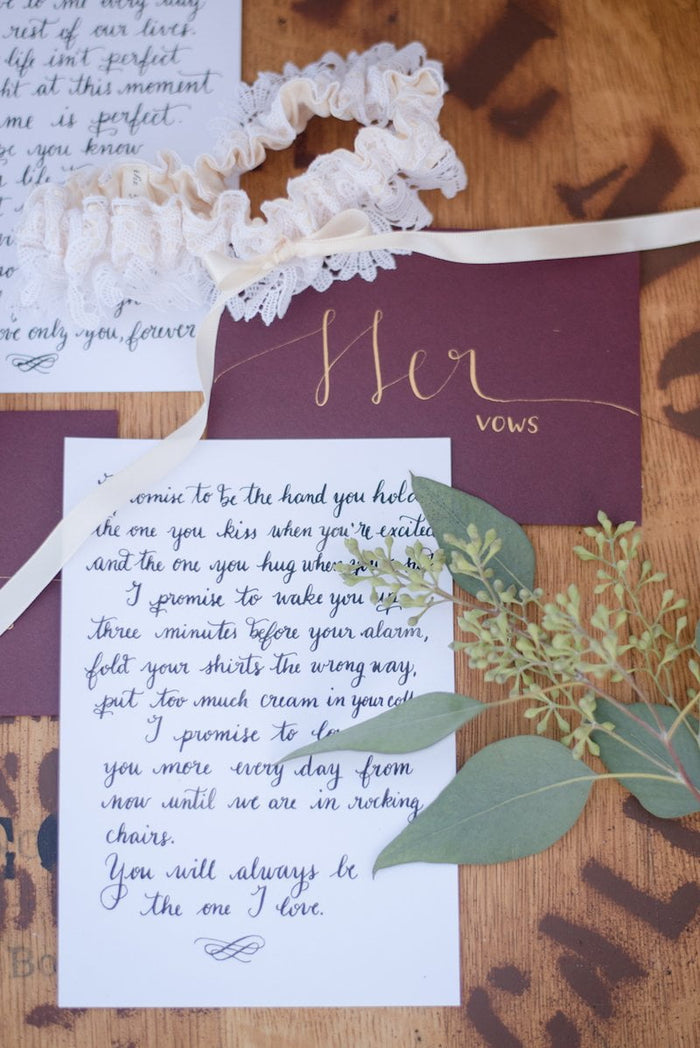 to me every day
rest of our lives.
life isn't perfect
at this moment
me is perfect.
you know
life
only you, forever
Her
VOWS
promise to be the hand you hold
the one you kiss when you're excited
and the one you hug when
I promise to wake you up
three minutes before your alarm,
fold your shirts the wrong way,
put too much cream in your
I promise to
you more every day from
now until we are in rocking
chairs.
You will always be
the one I love.